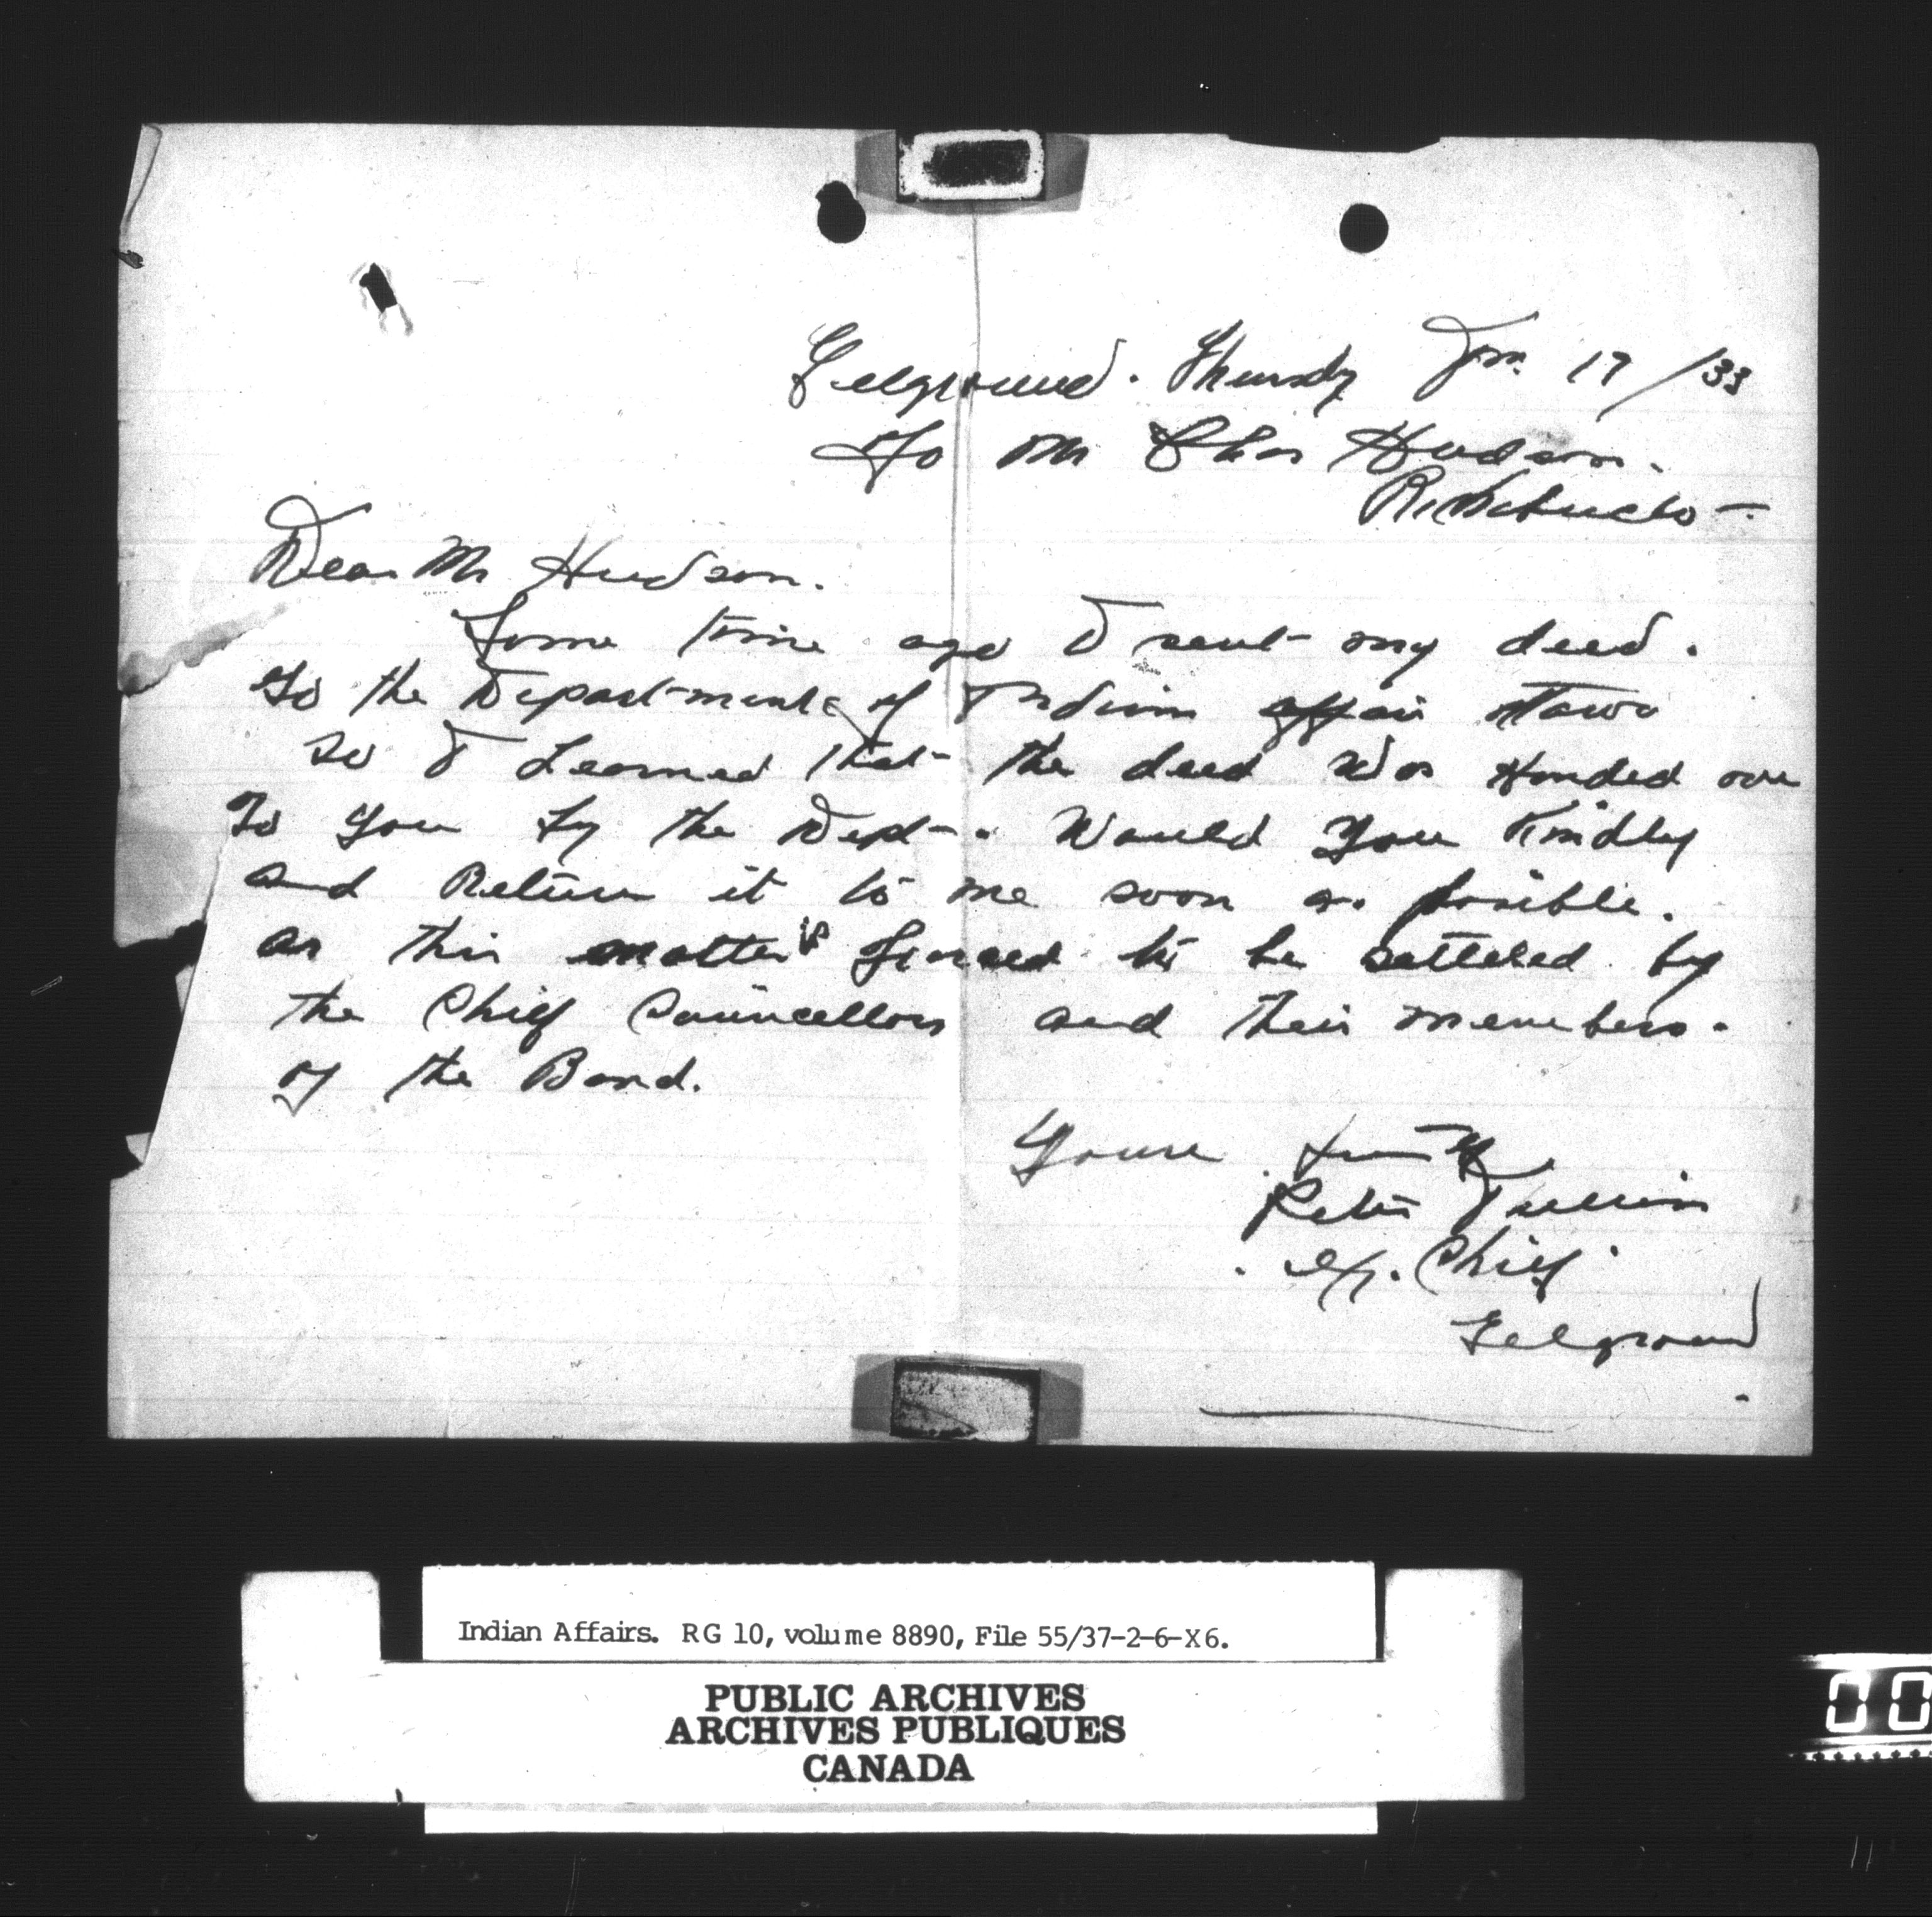 Eelground. Thursdy Jan. 17/33
To Mr Chas Hudson.
Richibucto -
Dear Mr Hudson.
Some time ago I sent my deed.
To the Department of Indian affair
So I Learned that the deed Was Handed over
To You by the Dept-. Would You Kindly
and Return it to me soon as posible.
as this matter is forced to be setteled by
the Chief Councellors and their members.
of the Band.
Yours truly
Peter
Ex. Chief
Eelground
Indian Affairs. RG 10, volume 8890, File 55/37-2-6-X6.
PUBLIC ARCHIVES
ARCHIVES PUBLIQUES
CANADA
00